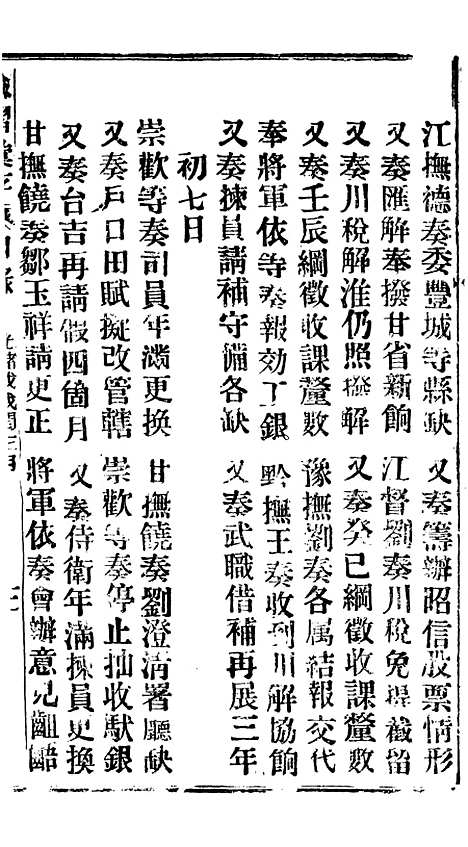 江撫德奏委豐城等縣缺 又奏籌辦昭信股票情形
又奏匯解奉撥甘省新餉 江督劉奏川稅免提截留
又奏川稅解淮仍照撥解 又奏癸巳綱徵收課釐數
又奏壬辰綱徵收課釐數 豫撫劉奏各属結報交代
奉將軍依等奏報効工銀 黔撫王奏收到川解協餉
又奏揀員請補守備各缺 又奏武職借補再展三年
初七日
崇歡等奏司員年滿更換 甘撫饒奏劉澄清署廳缺
又奏戶口田賦擬改管轄 崇歡等奏停止抽收馱銀
又奏台吉再請假四箇月 又奏侍衛年滿揀員更換
甘撫饒奏鄒玉祥請更正 將軍依奏會辦意見齟齬
目錄 光緒戊戌閏三月